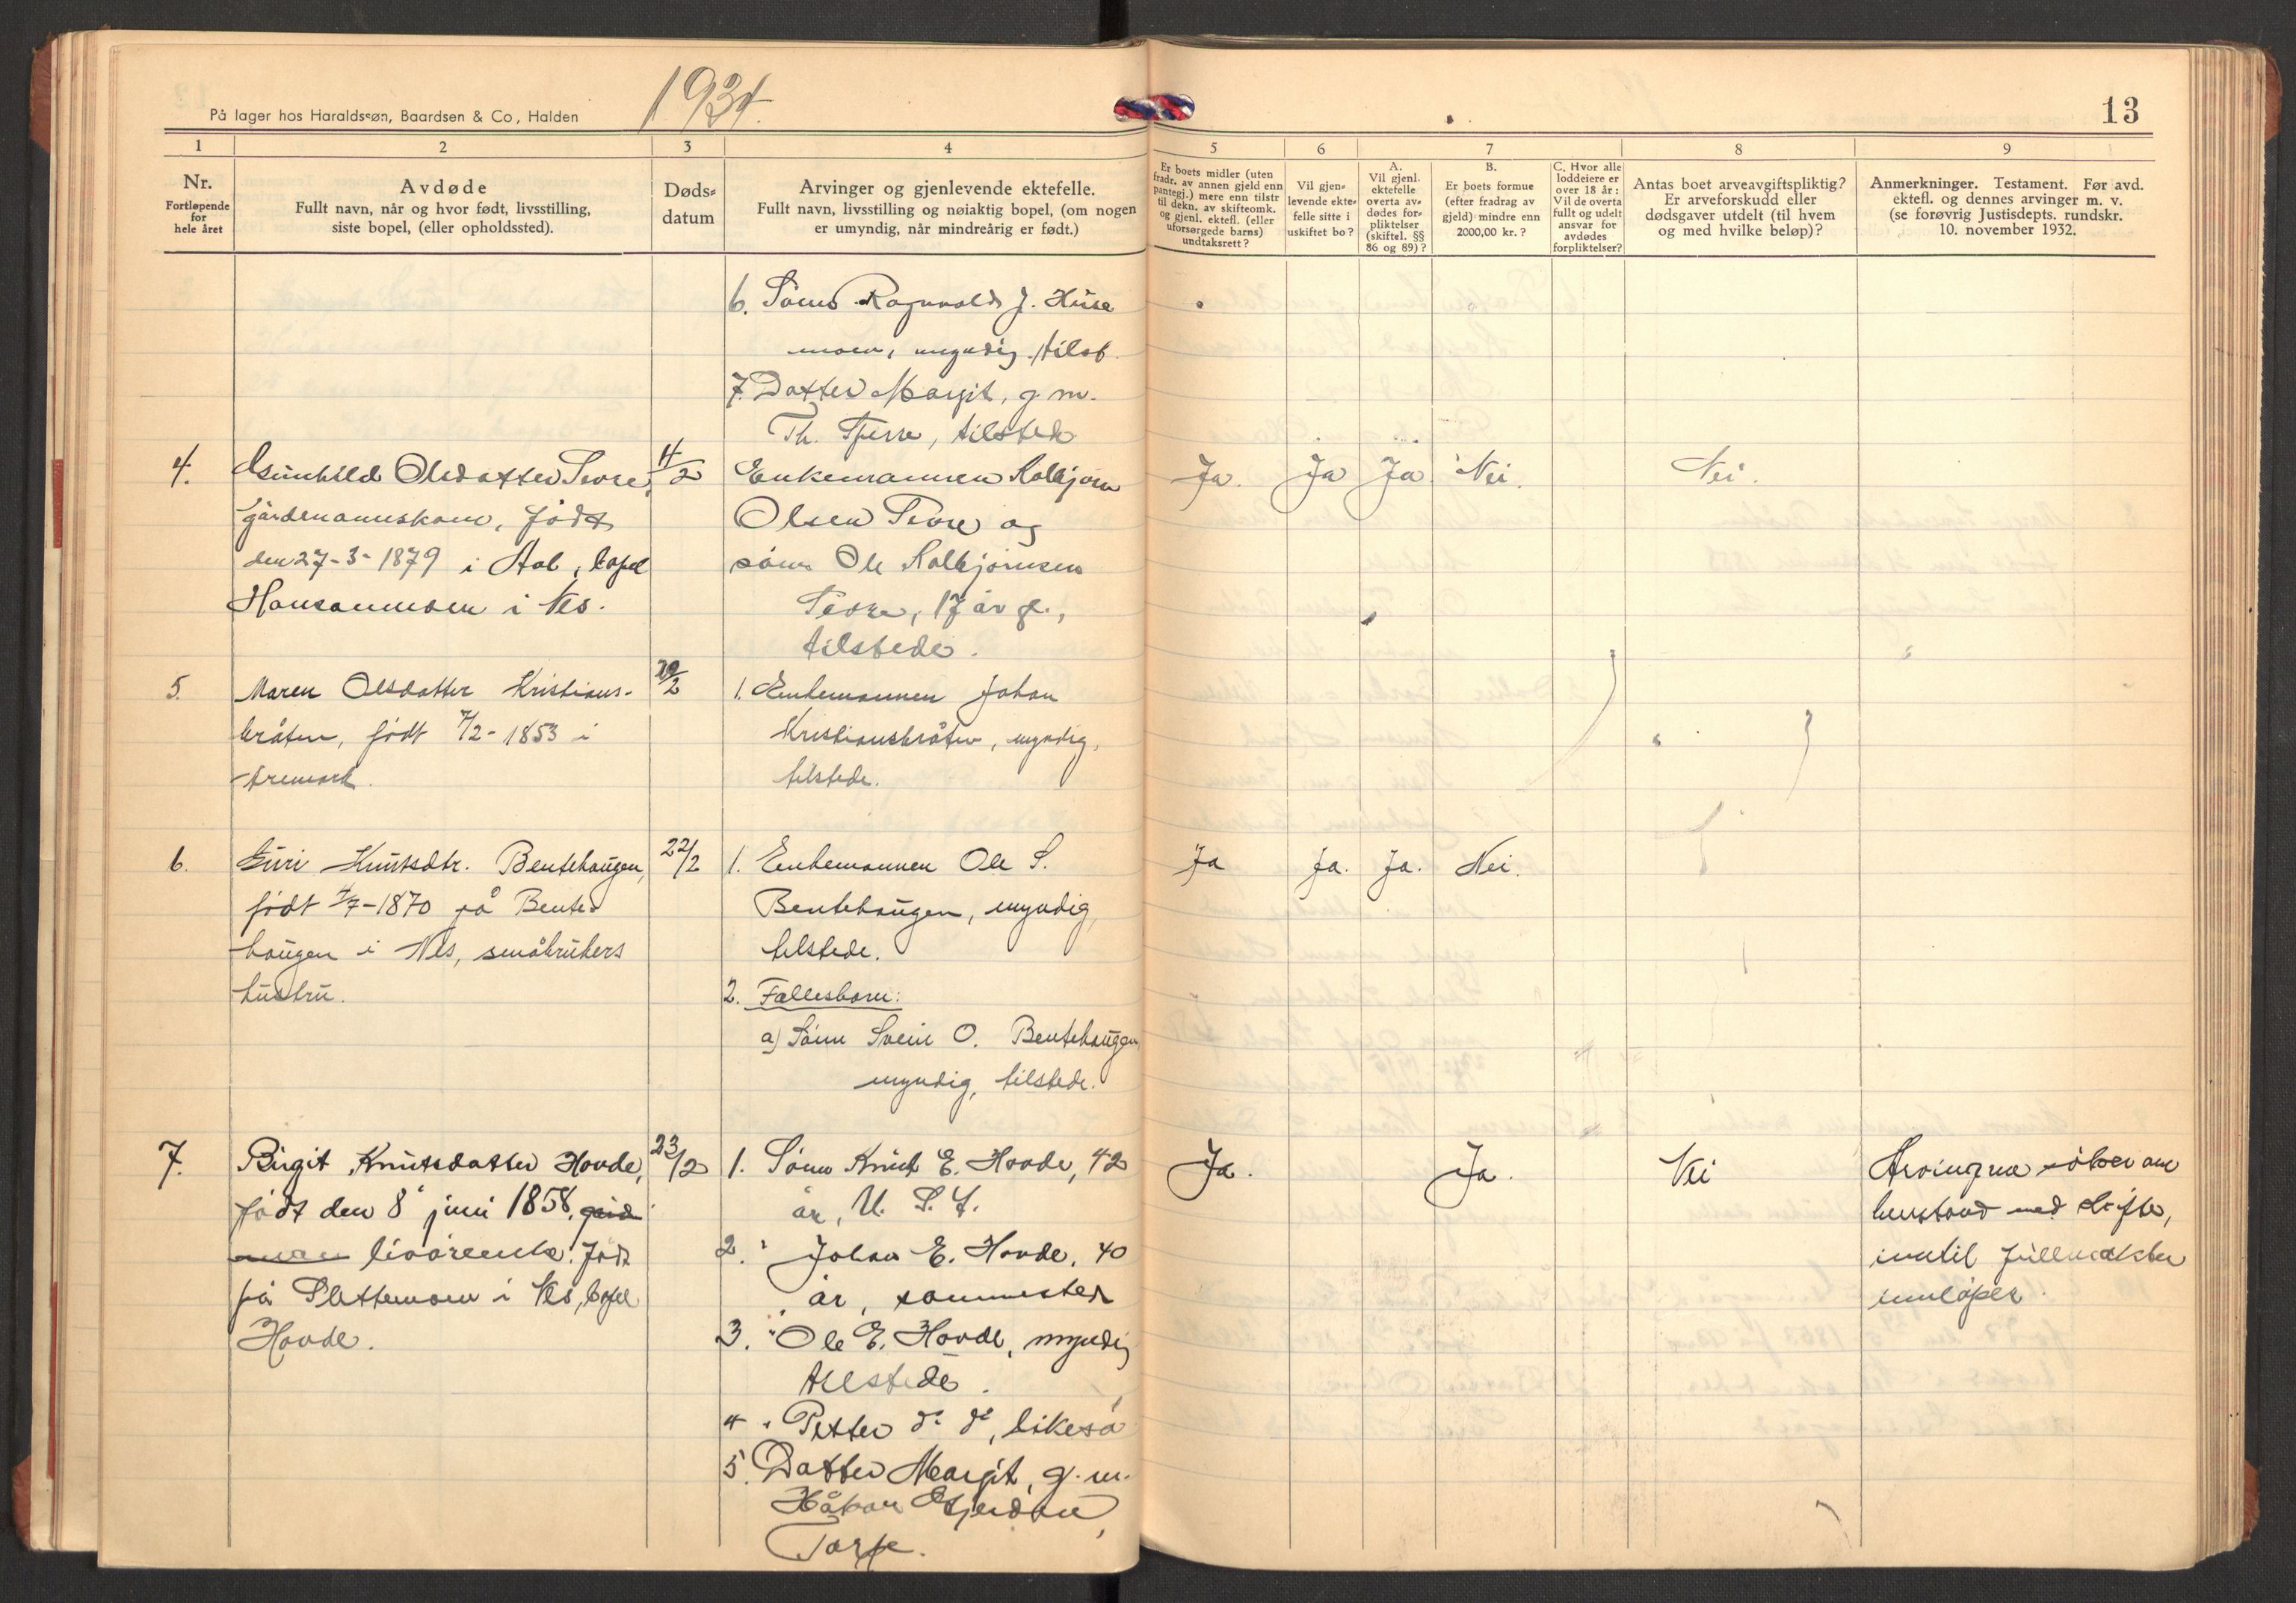 På lager hos Haraldssøn, Baardsen & Co, Halden
1934.
13
1 2 3 4 5 6 7 8 9
Nr.
Fortløpende
for
hele året
Avdøde
Fullt navn, når og hvor født, livsstilling,
siste bopel, (eller opholdssted).
Døds-
datum
Arvinger og gjenlevende ektefelle.
Fullt navn, livsstilling og nøiaktig bopel, (om nogen
er umyndig, når mindreårig er født.)
Er boets midler (uten
fradr. av annen gjeld enn
pantegj.) mere enn tilstr
til dekn. av skifteomk.
og gjenl. ektefl. (eller
uforsørgede barns)
undtaksrett?
Vil gjen-
levende ekte-
felle sitte i
uskiftet bo?
A.
Vil gjenl.
ektefelle
overta av-
dødes for-
pliktelser
(skiftel. §§
86 og 89)?
B.
Er boets formue
(efter fradrag av
gjeld) mindre enn
2000,00 kr.?
C. Hvor alle
loddeiere er
over 18 år:
Vil de overta
fullt og udelt
ansvar for
avdødes
forpliktelser?
Antas boet arveavgiftspliktig?
Er arveforskudd eller
dødsgaver utdelt (til hvem
og med hvilke beløp)?
Anmerkninger. Testament. Før avd.
ektefl. og dennes arvinger m. v.
(se forøvrig Justisdepts. rundskr.
10. november 1932.
6. Sønn Ragnvald J. Huse
moen, myndig, tilst.
7. Datter Margit, g. m.
Th. , tilstede
4. Gunhild Olsdatter Sevre,
gårdmannskone, født
den 27-3-1879 i Aal, bopel
i Nes.
Enkemannen Kolbjørn
Olsen Sevre og
sønn Ole Kolbjørnsen
Sevre, 17 år g.,
tilstede.
Ja. Ja Ja. Nei. Nei.
5. Maren Olsdatter Kristians-
bråten, født 7/2-1853 i
Aremark.
1. Enkemannen Johan
Kristiansbråten, myndig,
tilstede.
6. Guri Knutsdtr. Bentehaugen,
født 4/7-1870 på Bente-
haugen i Nes, småbrukers
hustru.
22/2
1. Enkemannen Ole S.
Bentehaugen, myndig,
tilstede.
2. Fellesbarn:
a) Sønn Svein O. Bentehaugen
myndig, tilstede.
Ja Ja. Ja. Nei.
7. Birgit Knutsdatter Hovde,
født den 8 juni 1858,
livørenke. Født
på Slettemoen i Nes, bopel
Hovde.
23/2
1. Sønn Knut E. Hovde, 42
år, U. S. A.
2. " Johan E. Hovde, 40
år, sammesteds
3. " Ole E. Hovde, myndig
tilstede.
4. " Petter do do, likeså
5. Datter Margit, g. m.
Håkon ,
Torpe.
Ja. Ja. Nei
Arvingene søker om
henstand med skifte,
inntil fullmakter
innløper.